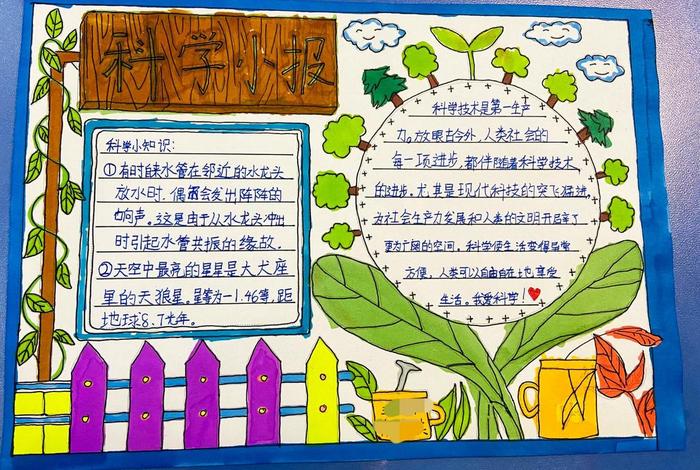 科学小报
科学小知识:
①有时自来水管在邻近的水龙头
放水时,偶尔会发出阵阵的
响声。这是由于从水龙头冲出
时引起水管共振的缘故.
②天空中最亮的星星是大犬座
里的天狼星。星等为-1.46等,距
地球8.7光年。
科学技术是第一生产
力。放眼古今外,人类社会的
每一项进步,都伴随着科学技术
的进步。尤其是现代科技的突飞猛进,
为社会生产力发展和人类的文明开辟了
更为广阔的空间。科学使生活变得异常
方便,人类可以自由自在地享受
生活。我爱科学!